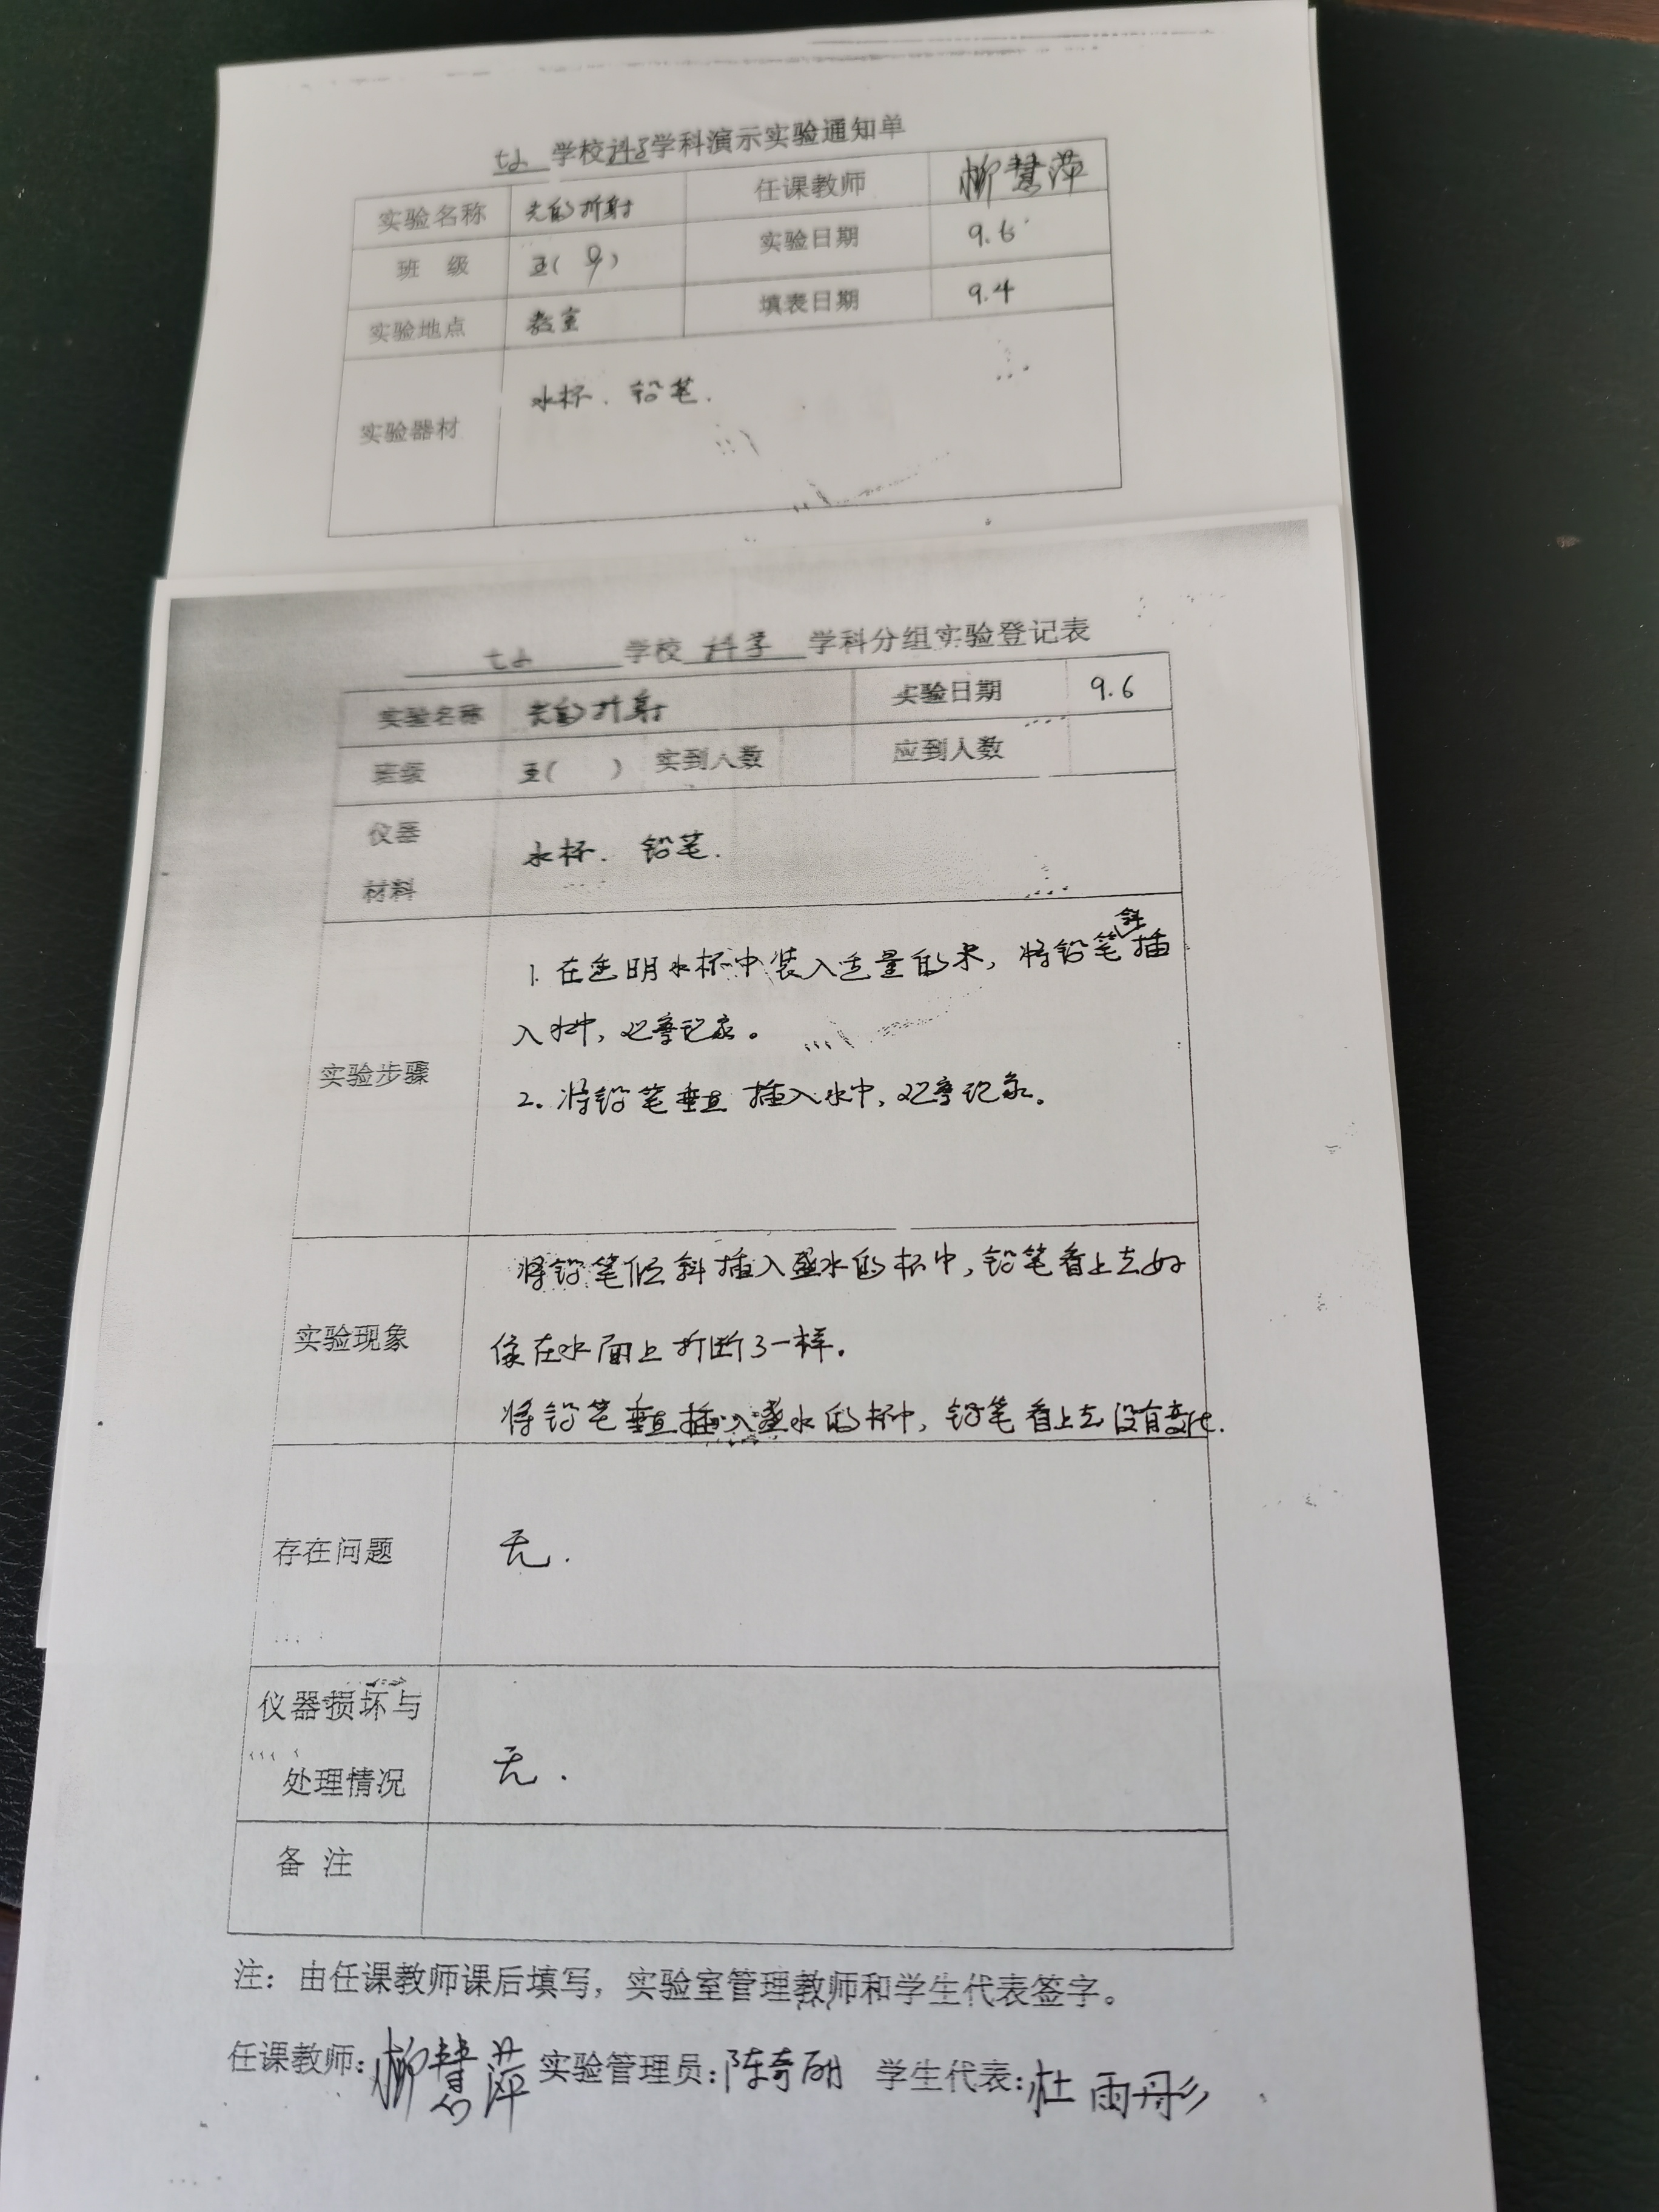 七小 学校 科学 学科演示实验通知单
实验名称 光的折射 任课教师 柳慧萍
班 级 五( 9 ) 实验日期 9.6
实验地点 教室 填表日期 9.4
实验器材 水杯. 铅笔.
七小 学校 科学 学科分组实验登记表
实验名称 光的折射 实验日期 9.6
班级 五( ) 实到人数 应到人数
仪器
材料
水杯. 铅笔.
1. 在透明水杯中装入适量的水, 将铅笔斜插
入水中, 观察记录。
实验步骤
2. 将铅笔垂直插入水中, 观察记录。
将铅笔倾斜插入盛水的杯中, 铅笔看上去好
实验现象
像在水面上折断了一样.
将铅笔垂直插入盛水的杯中, 铅笔看上去没有变化.
存在问题 无.
仪器损坏与
处理情况
无.
备 注
注：由任课教师课后填写，实验室管理教师和学生代表签字。
任课教师: 柳慧萍 实验管理员: 陈奇丽 学生代表: 杜雨彤